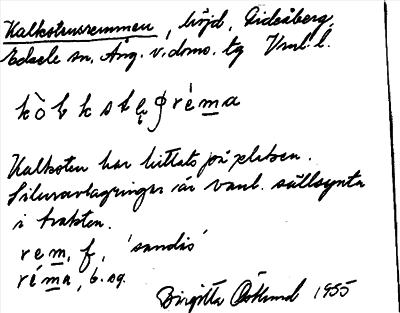 Kalkstensremmen, höjd, Sidsåberg,
Edsele sn, Ång. v.domo. tg Vnl. l.
Kalksten har hittats på platsen.
Siluravlagringar är vanl. sällsynta
i trakten.
rem, f, 'sandås'
réma, b. sg.
Birgitta Östlund 1955